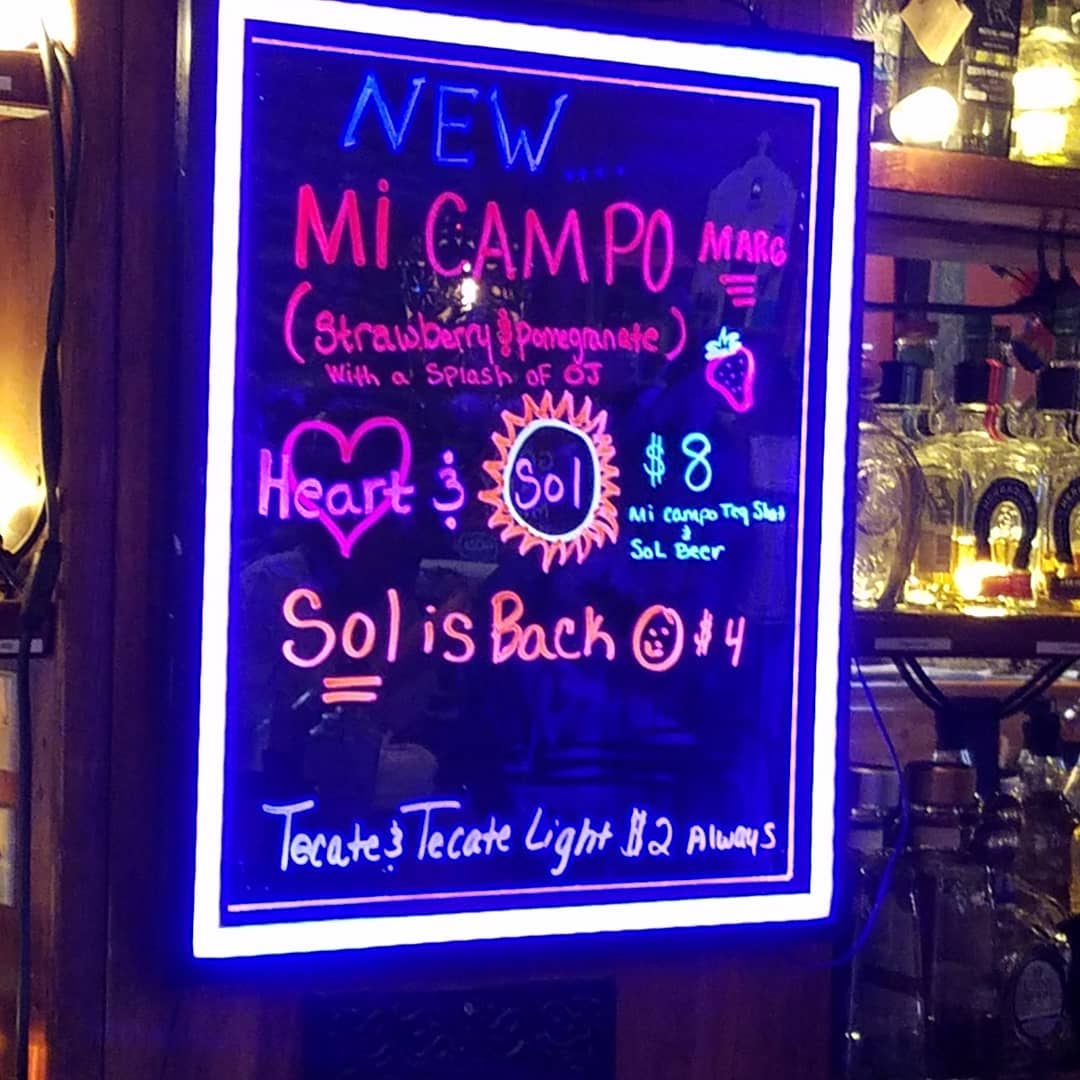 NEW....
Mi CAMPO MARG
(Strawberry & Pomegranate)
With a Splash OF OJ
Heart & Sol $8
Mi campo Teq Shot
&
SoL Beer
Sol is Back $4
Tecate & Tecate Light $2 Always